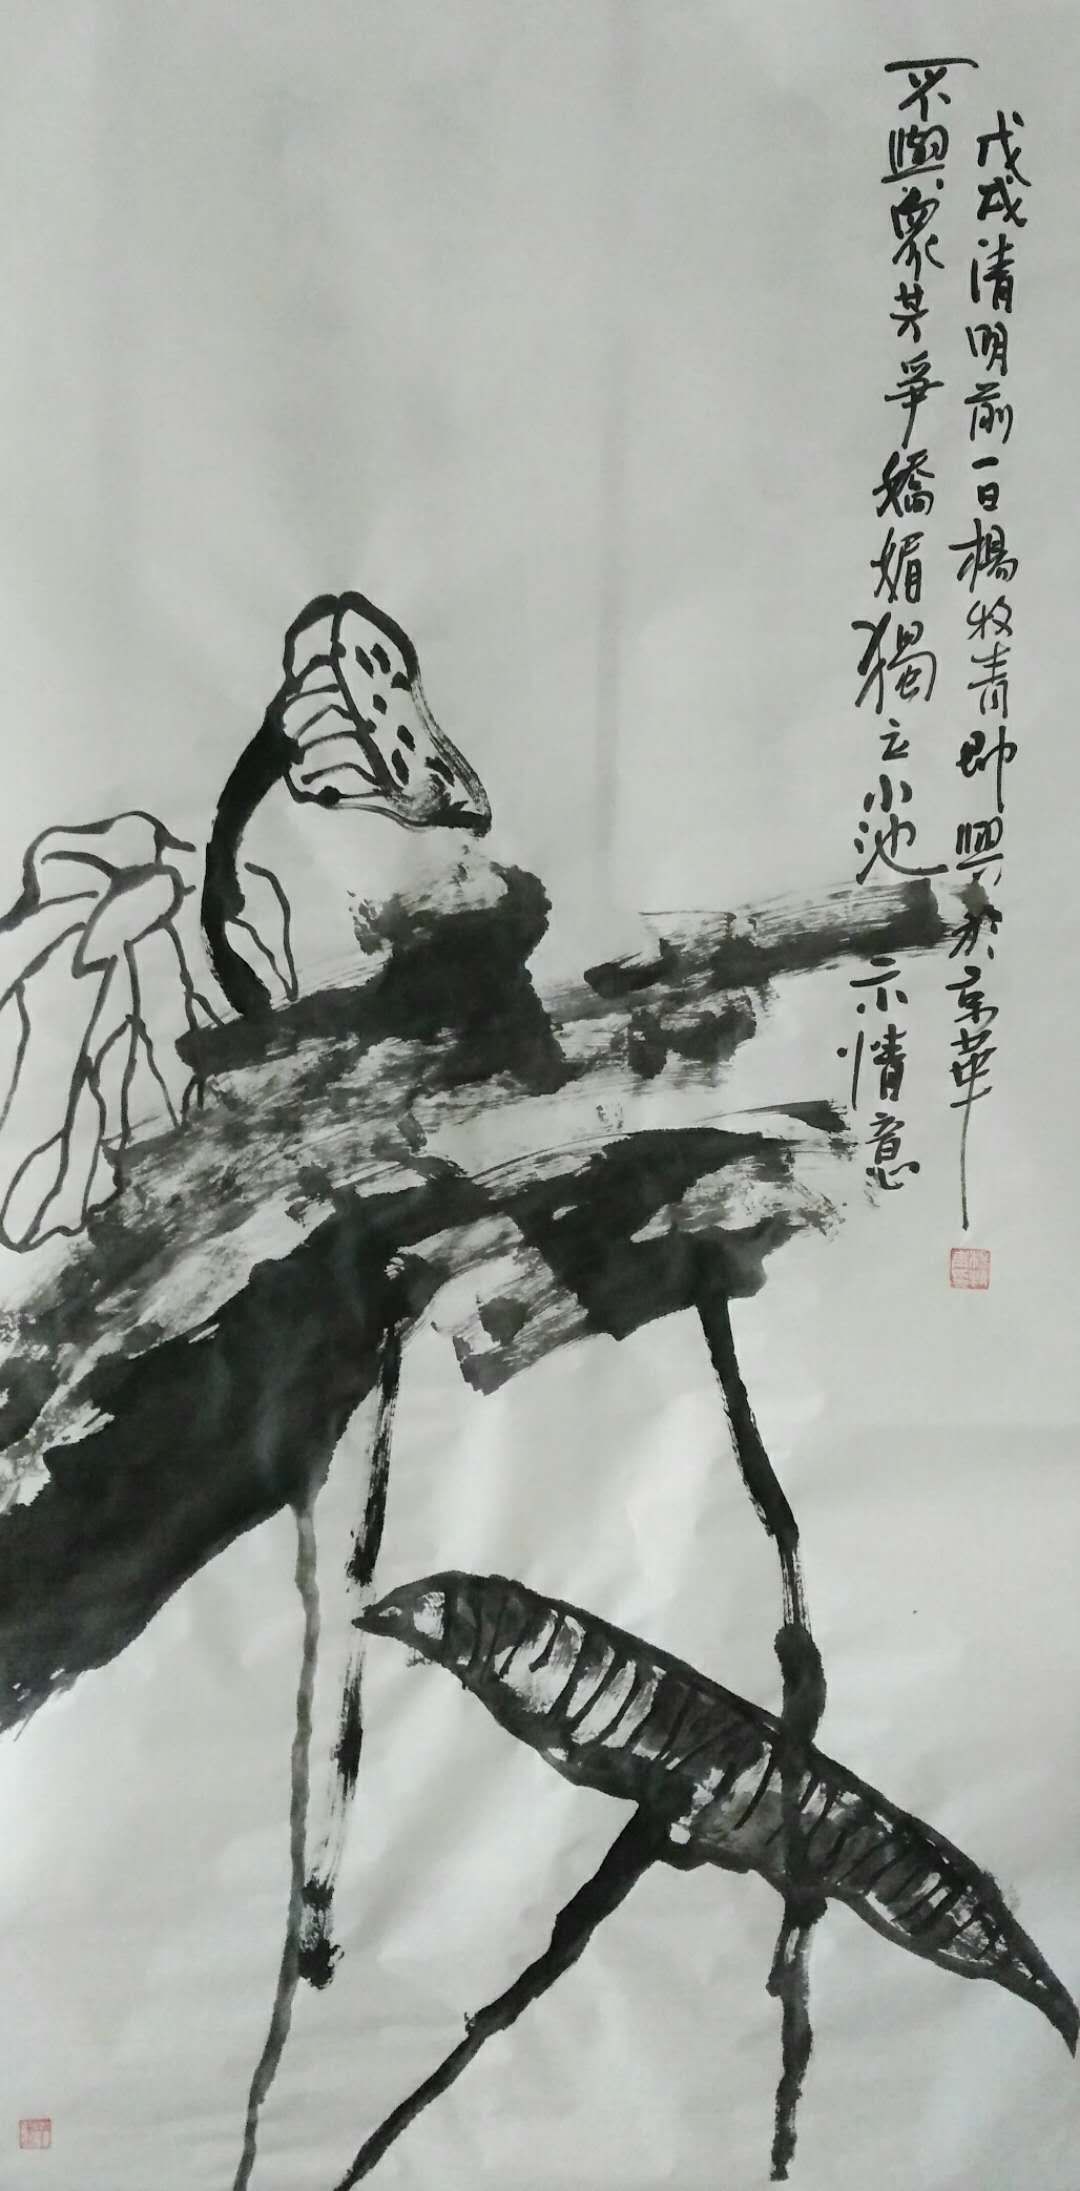 不與眾芳爭嬌媚獨立小池示情意
戊戌清明前一日楊牧青即興於京華